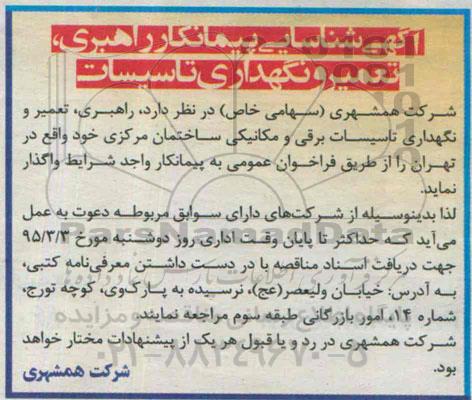 آگهی شناسایی پیمانکار راهبری،
تعمیر و نگهداری تاسیسات
شرکت همشهری (سهامی خاص) در نظر دارد، راهبری، تعمیر و
نگهداری تاسیسات برقی و مکانیکی ساختمان مرکزی خود واقع در
تهران را از طریق فراخوان عمومی به پیمانکار واجد شرایط واگذار
نماید.
لذا بدینوسیله از شرکت‌های دارای سوابق مربوطه دعوت به عمل
می‌آید که حداکثر تا پایان وقت اداری روز دوشنبه مورخ ۹۵/۳/۳
جهت دریافت اسناد مناقصه با در دست داشتن معرفی‌نامه کتبی،
به آدرس: خیابان ولیعصر(عج)، نرسیده به پارک‌وی، کوچه تورج،
شماره ۱۴، امور بازرگانی طبقه سوم مراجعه نمایند.
شرکت همشهری در رد و یا قبول هر یک از پیشنهادات مختار خواهد
بود.
شرکت همشهری
ParsNamadData
۰۲۱-۸۸۳۴۹۶۷۰-۵